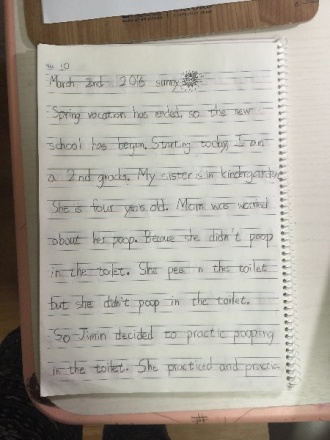 № 10
March 2nd 2016 sunny
Spring vacation has ended, so the new
school has begin. Starting today, I am
a 2nd grade. My sister is in kindergarten
She is four years old. Mom was worried
about her poop. Because she didn't poop
in the toilet. She pees in the toilet
but she didn't poop in the toilet.
So Jimin decided to practic pooping
in the toilet. She practiced and practic